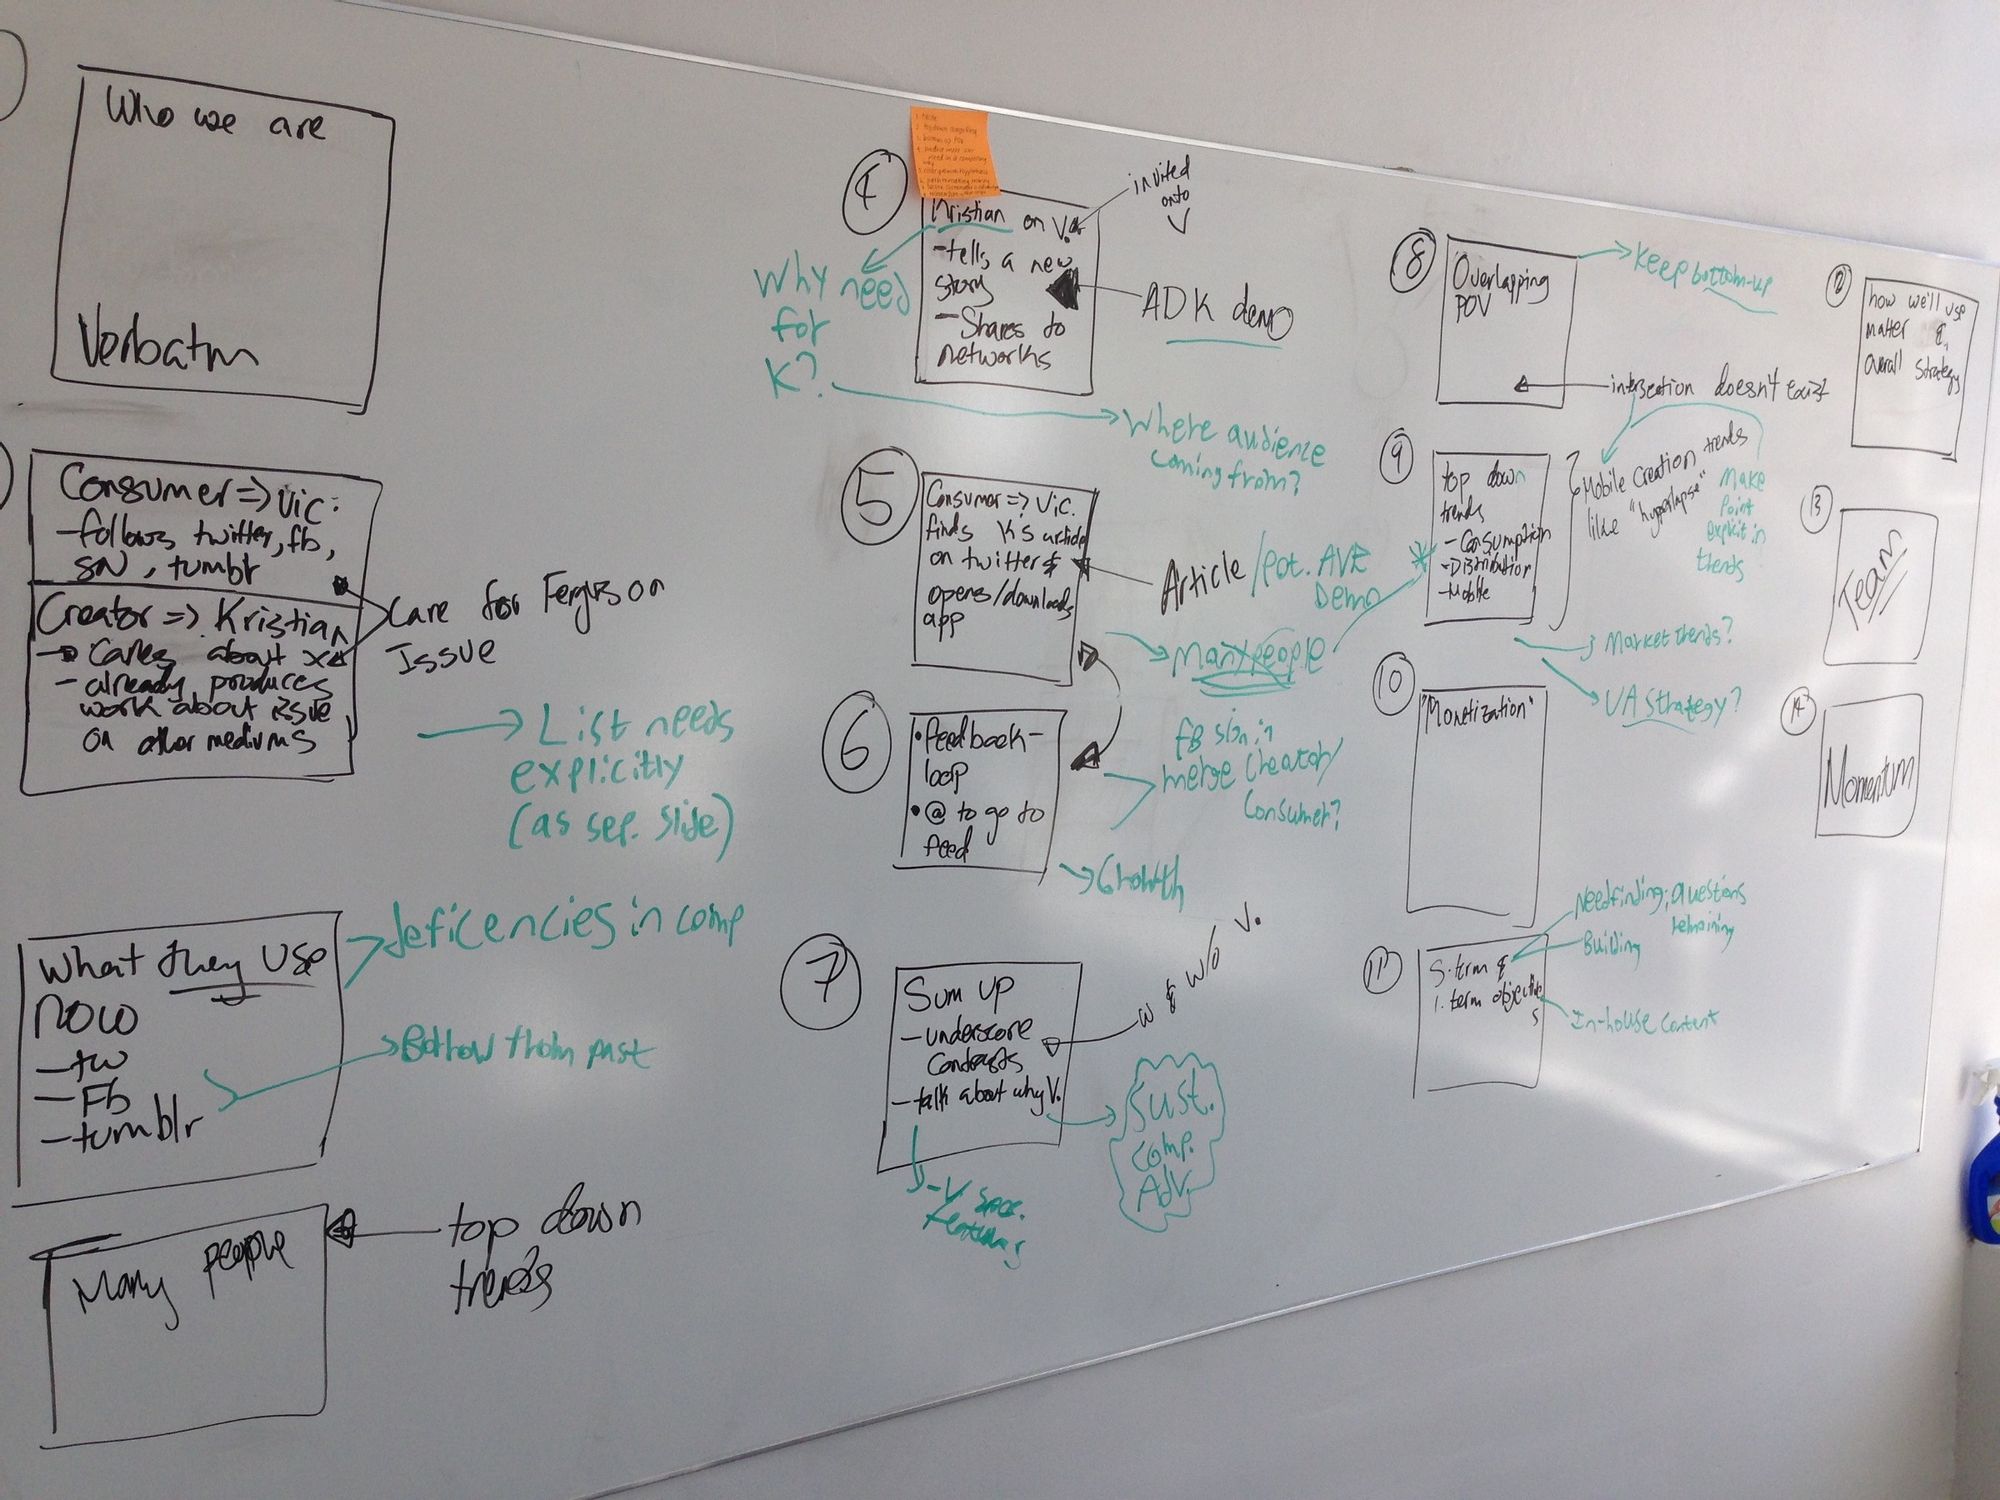 Who we are
Verbatm
Consumer => Vic:
- follows twitter, fb,
SN, tumblr
Creator => Kristian
- Cares about x
- already produces
work about issue
on other mediums
Care for Ferguson
Issue
List needs
explicitly
(as sep. slide)
What they use
now
- tw
- Fb
- tumblr
deficencies in comp
Borrow from past
Many people
top down
trends
4
Kristian on V.
- tells a new
story
- Shares to
networks
invited
onto
V
ADK demo
Why need
for
K?
Where audience
coming from?
5
Consumer => Vic.
finds K's article
on twitter &
opens/downloads
app
Article/Pot. AVE
Demo
Many people
6
• feedback-
loop
• @ to go to
feed
FB sign in
merge creator/
consumer?
Growth
7
Sum up
- underscore
contrasts
- talk about why V.
w & w/o V.
Sust.
comp.
Adv.
- V. spec.
features
8
Overlapping
POV
Keep bottom-up
intersection doesn't exist
9
top down
trends
- Consumption
- Distribution
- Mobile
Mobile Creation trends
like "hyperlapse"
Make
point
explicit in
trends
Market trends?
UA strategy?
10
"Monetization"
11
S. term &
l. term objectives
Needfinding; questions
remaining
Building
In-house content
12
how we'll use
matter &
overall strategy
13
Team
14
Momentum